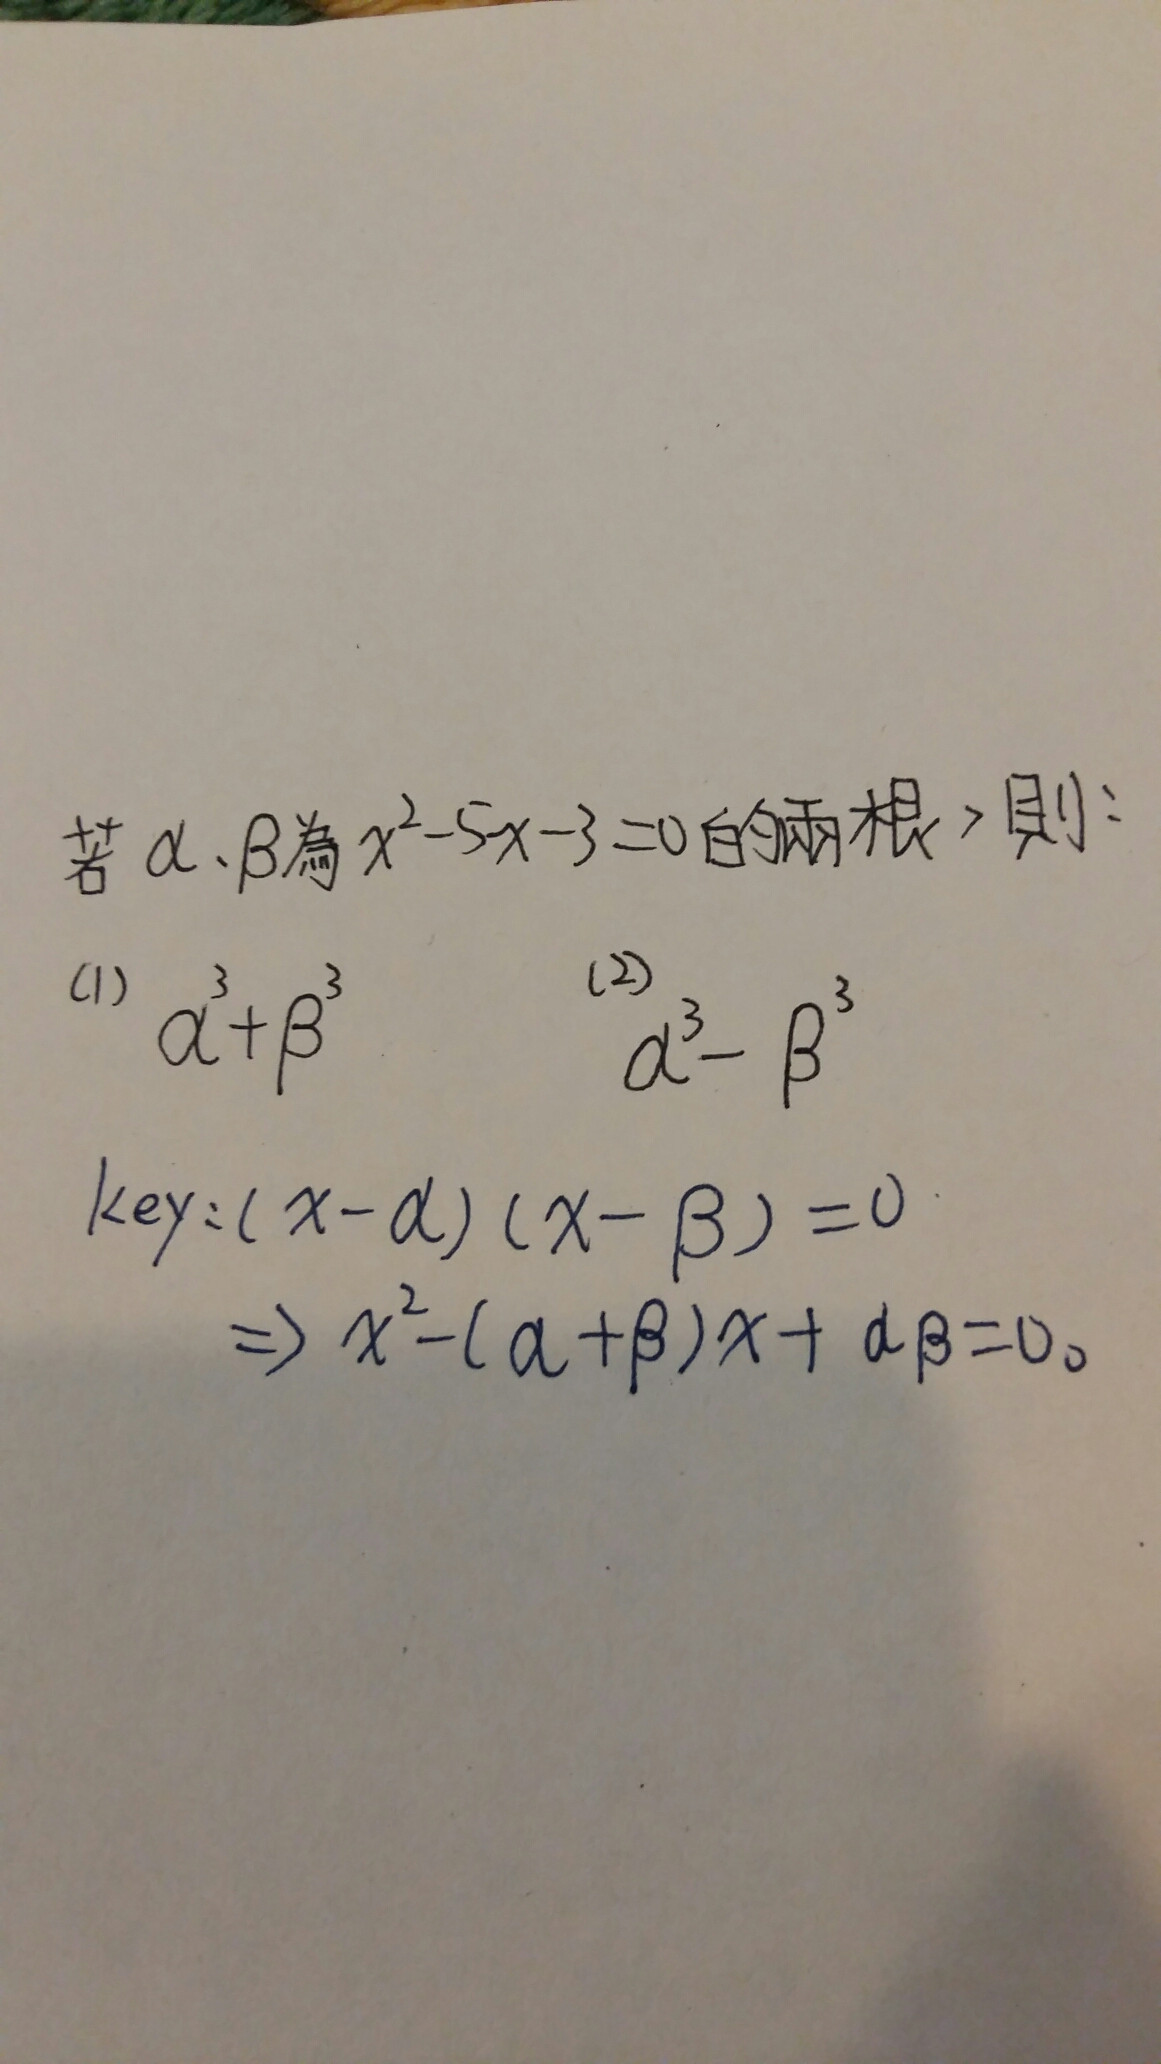 若 α、β為 x²-5x-3=0的兩根，則：
(1) α³+β³ (2) α³-β³
key:(x-α)(x-β)=0
=> x²-(α+β)x+αβ=0。